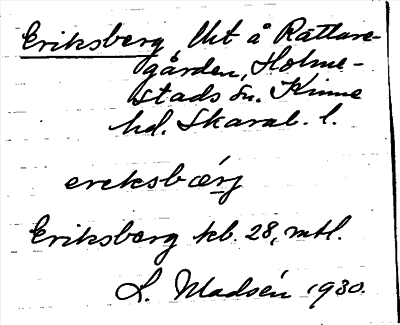 Eriksberg, lht å Rättare-
gården, Holme-
stads sn. Kinne
hd. Skarab. l.
ereksbærj
Eriksberg kb. 28, mtl.
L. Madsén 1930.